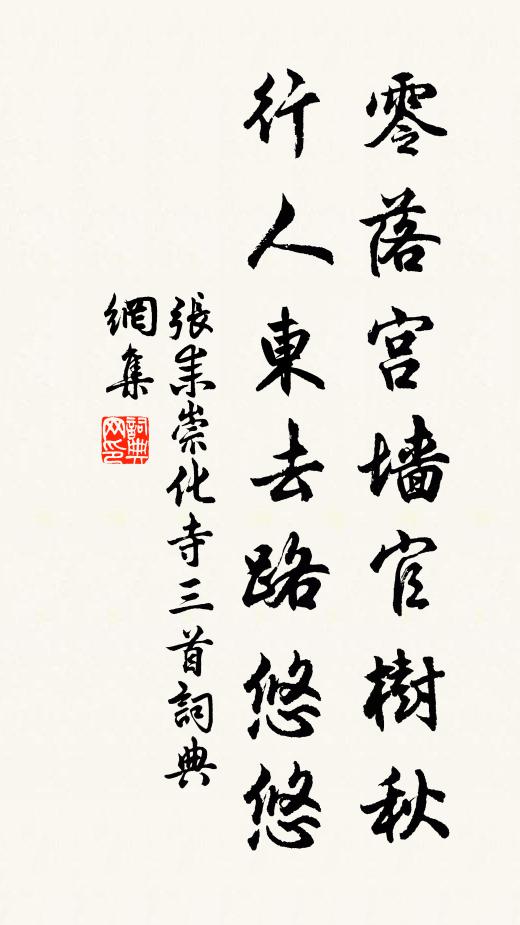 零落宫墙官樹秋
行人東去路悠悠
張耒崇化寺三首詞典
網集
詞典网印